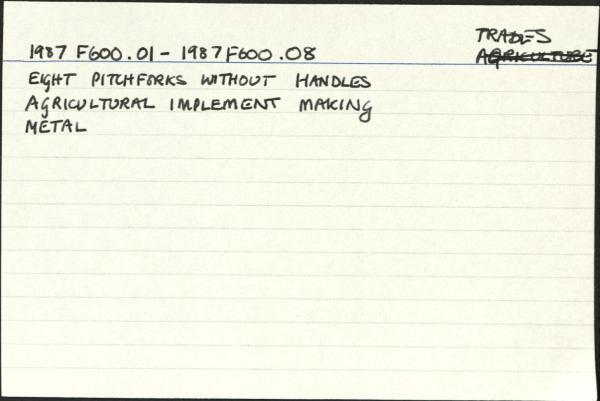 TRADES
1987 F600.01 - 1987 F600.08 AGRICULTURE
EIGHT PITCHFORKS WITHOUT HANDLES
AGRICULTURAL IMPLEMENT MAKING
METAL